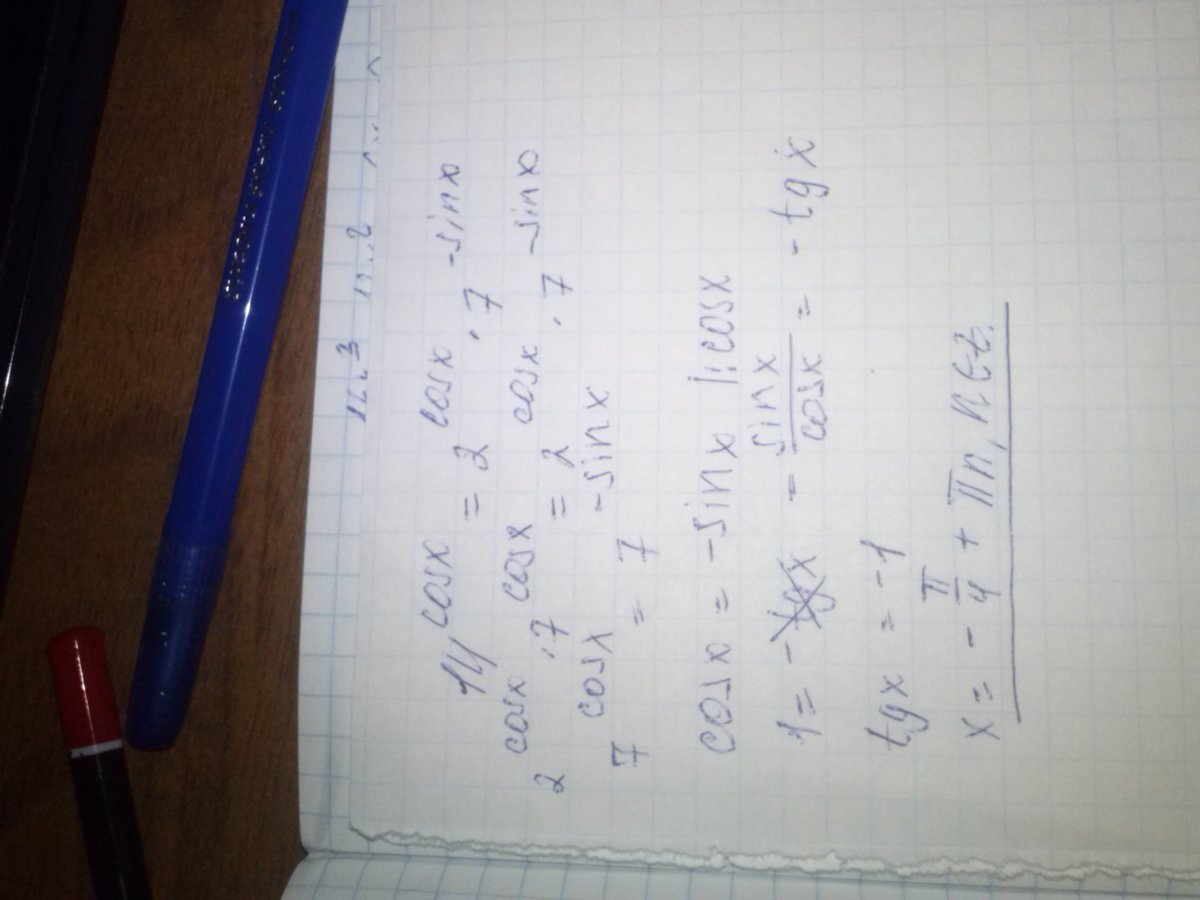 14^cosx = 2^cosx · 7^-sinx
2^cosx · 7^cosx = 2^cosx · 7^-sinx
7^cosx = 7^-sinx
cosx = -sinx |:cosx
1 = - sinx/cosx = -tgx
tgx = -1
x = - π/4 + πn, n∈Z.